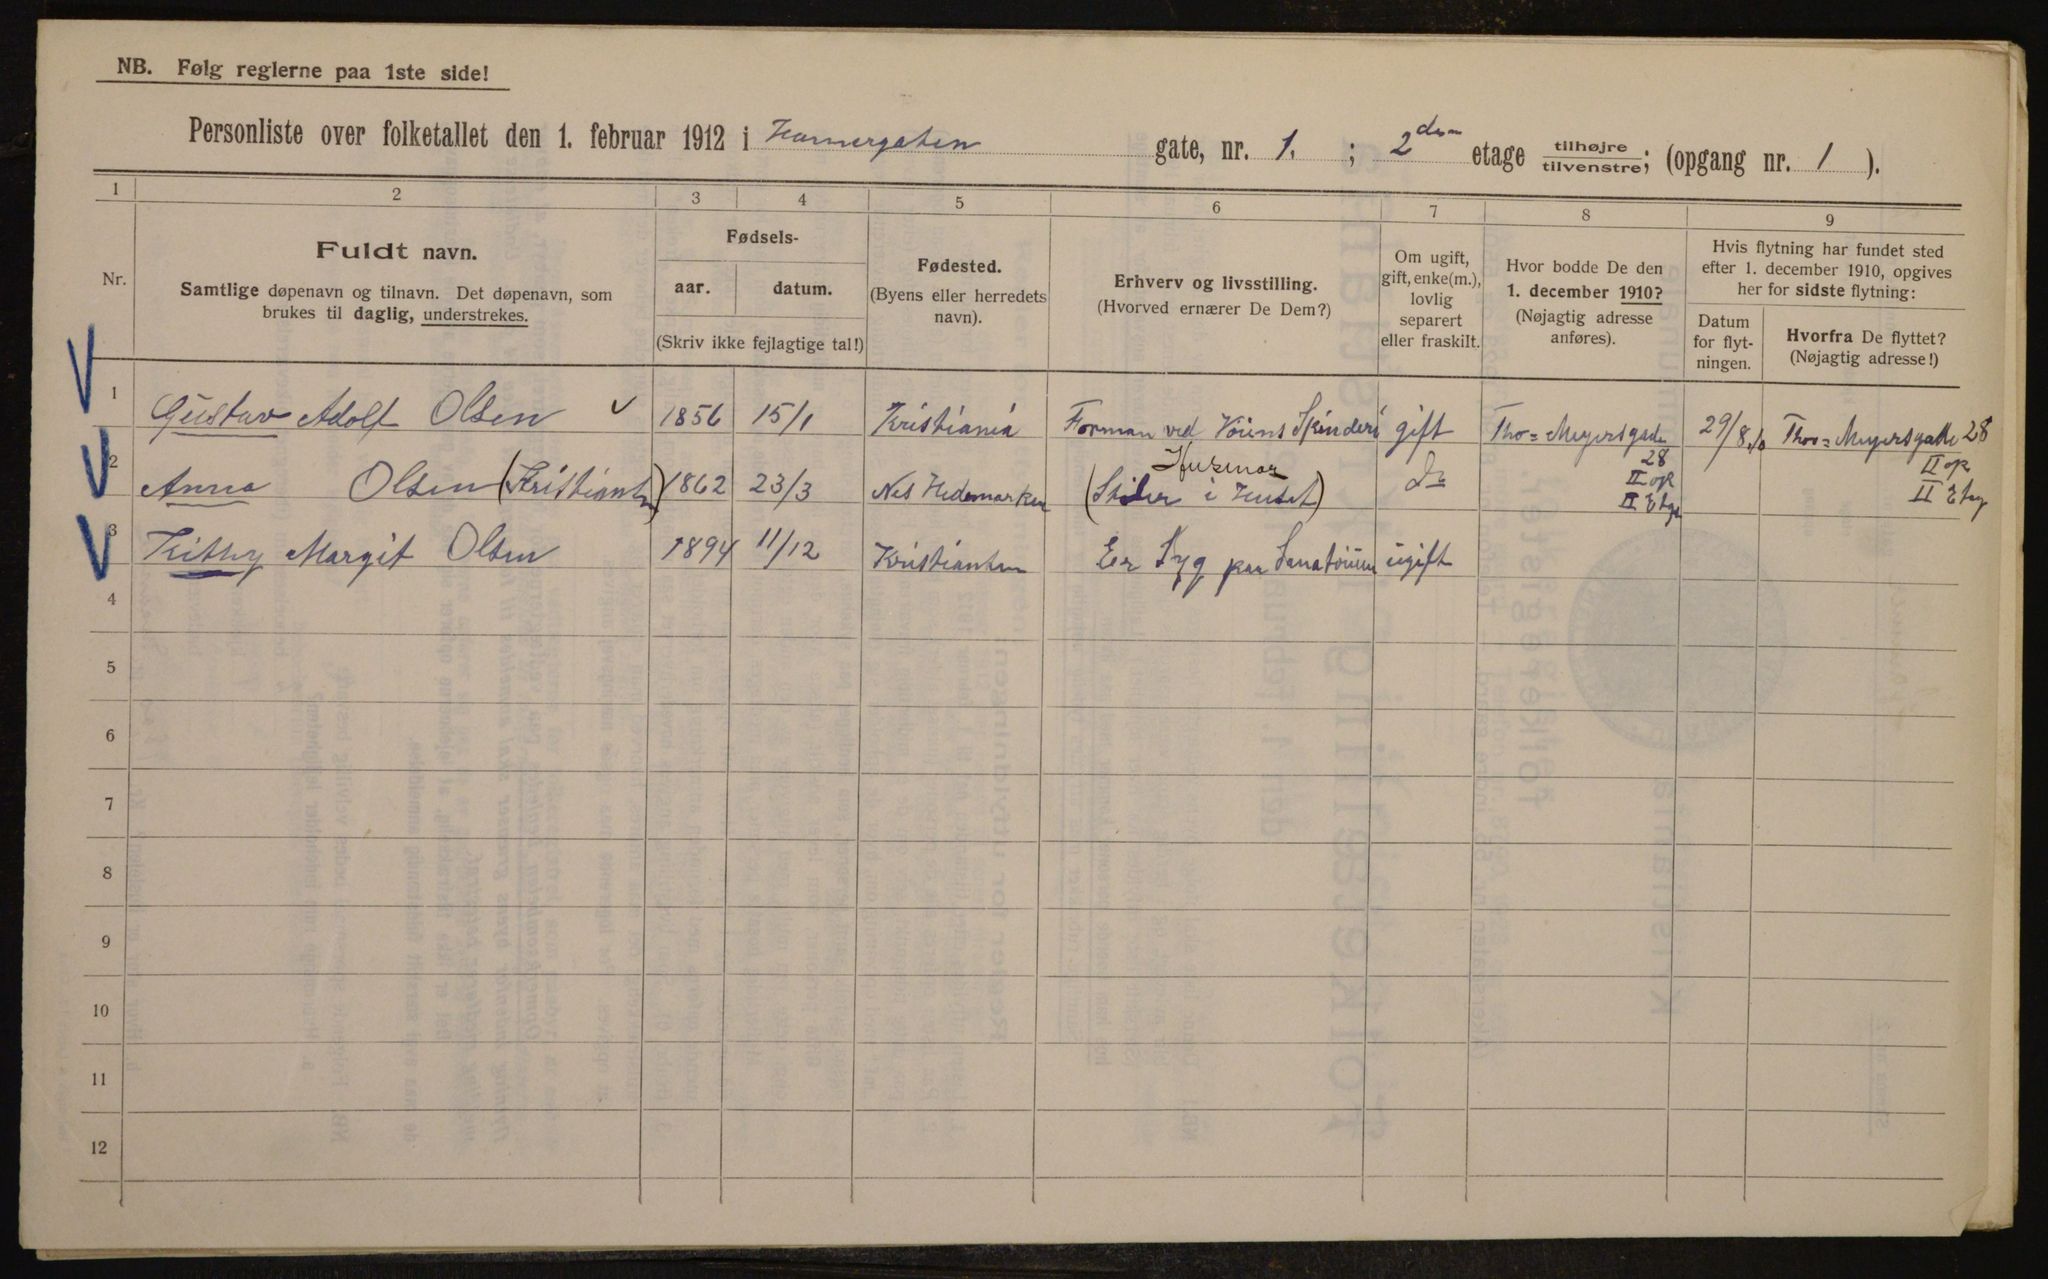 NB. Følg reglerne paa 1ste side!
Personliste over folketallet den 1. februar 1912 i gate, nr. 1. ; 2den etage tilhøjre/tilvenstre; (opgang nr. 1 ).
1 2 3 4 5 6 7 8 9
Nr.
Fuldt navn.
Samtlige døpenavn og tilnavn. Det døpenavn, som
brukes til daglig, understrekes.
Fødsels-
aar. datum.
(Skriv ikke fejlagtige tal!)
Fødested.
(Byens eller herredets
navn).
Erhverv og livsstilling.
(Hvorved ernærer De Dem?)
Om ugift,
gift, enke(m.),
lovlig
separert
eller fraskilt.
Hvor bodde De den
1. december 1910?
(Nøjagtig adresse
anføres).
Hvis flytning har fundet sted
efter 1. december 1910, opgives
her for sidste flytning:
Datum
for flyt-
ningen.
Hvorfra De flyttet?
(Nøjagtig adresse!)
1 Gustav Adolf Olsen 1856 15/1 Kristiania Forman ved Vøiens Spinderi gift Tho= Meyersgade 28 II op II Etge 29/8 10 Tho= Meyersgatte 28 II op II Etg
2 Anna Olsen 1862 23/3 Nes Hedemarken Husmor i Huset) Do
3 Margit Olsen 1894 11/12 Er Syg paa Sanatorium ugift
4
5
6
7
8
9
10
11
12